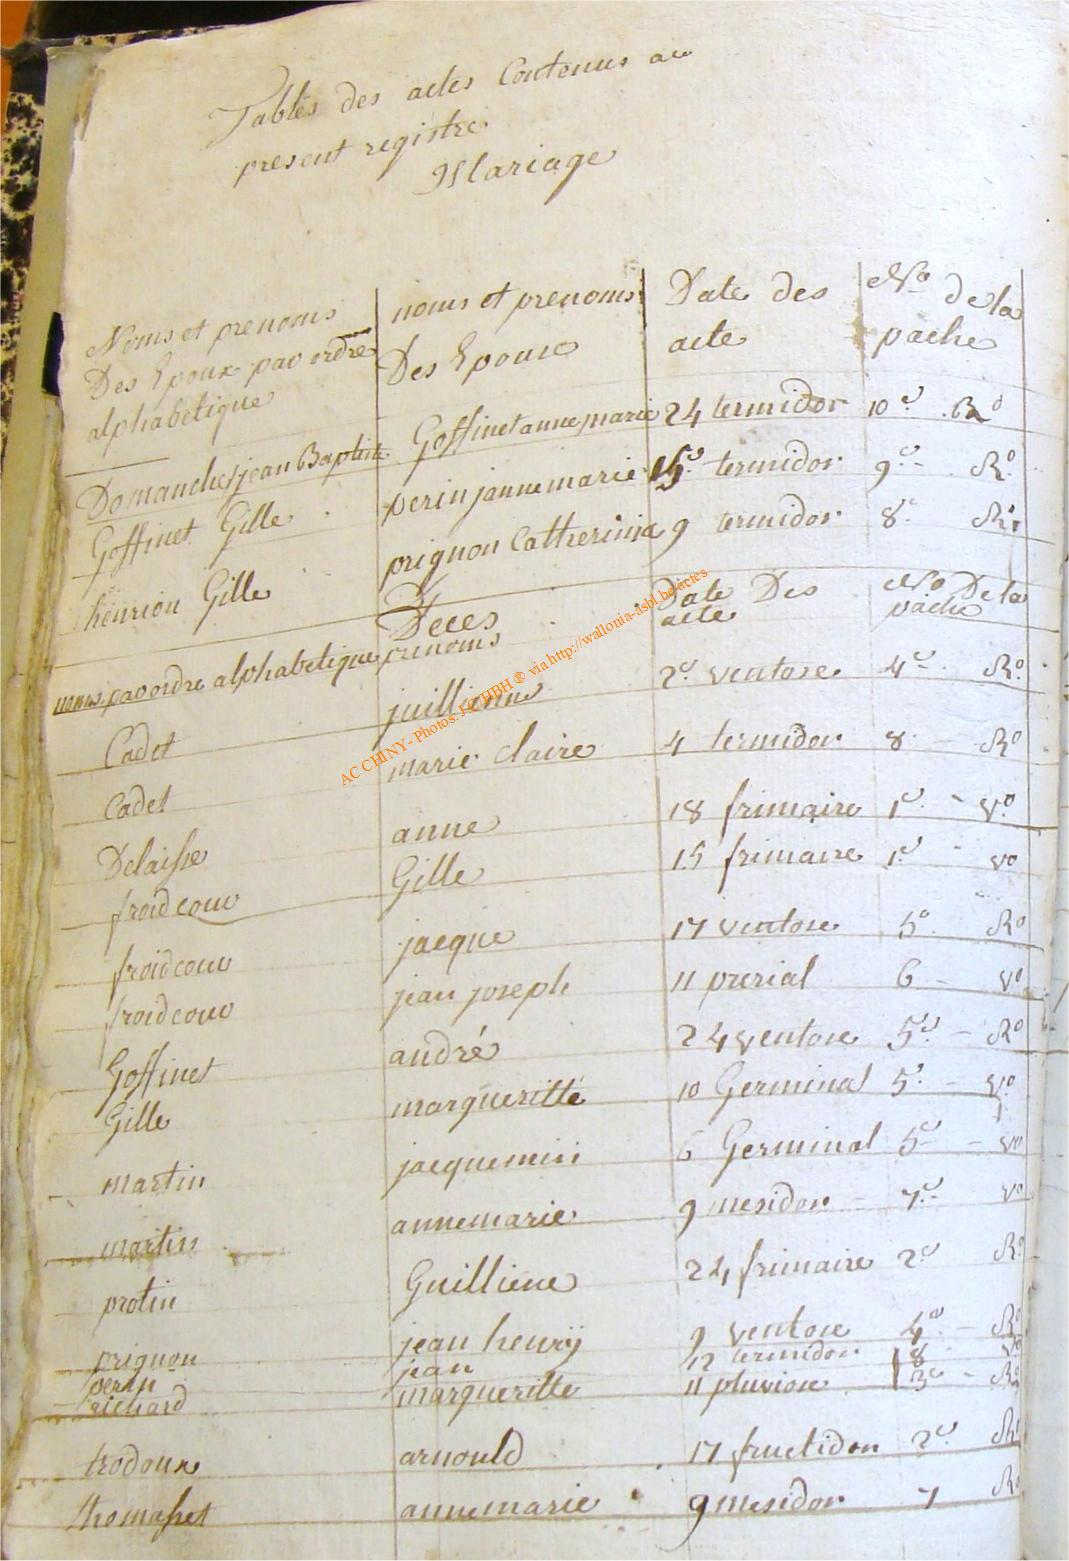 Tables des actes Contenus au
present registre
Mariage
Noms et prenoms
Des Epoux par ordre
alphabetique
noms et prenoms
Des Epouse
Date des
acte
No de la
pache
Domanche jean Baptiste Goffinet anne marie 24 termidor 10e Ro
Goffinet Gille perin janne marie 15e termidor 9e Ro
henrion Gille prignon Catherinne 9 termidor 8e Ro
Deces
noms par ordre alphabetique prenoms
Date Des
acte
No De la
pache
Cadet juillienne 2e ventose 4e Ro
Cadet marie claire 4 termidor 8 Ro
Delaisse anne 18 frimaire 1e vo
froidcour Gille 15 frimaire 1e vo
froidcour jacque 17 ventose 5e Ro
froidcour jean joseph 11 prerial 6 vo
Goffinet andré 24 ventose 5e Ro
Gille margueritte 10 Germinal 5e vo
martin jacquemin 6 Germinal 5e vo
martin annemarie 9 mesidor 7e vo
protin Guilliene 24 frimaire 2e Ro
prignon jean henrÿ 9 ventose 4e Ro
perin jean 12 termidor 8 vo
richard margueritte 11 pluviose 3e Ro
trodoux arnould 17 fructidor 2e Ro
thomasset annemarie 9 mesidor 7 Ro
AC CHINY - Photos: ® via http://wallonia-asbl.be/actes